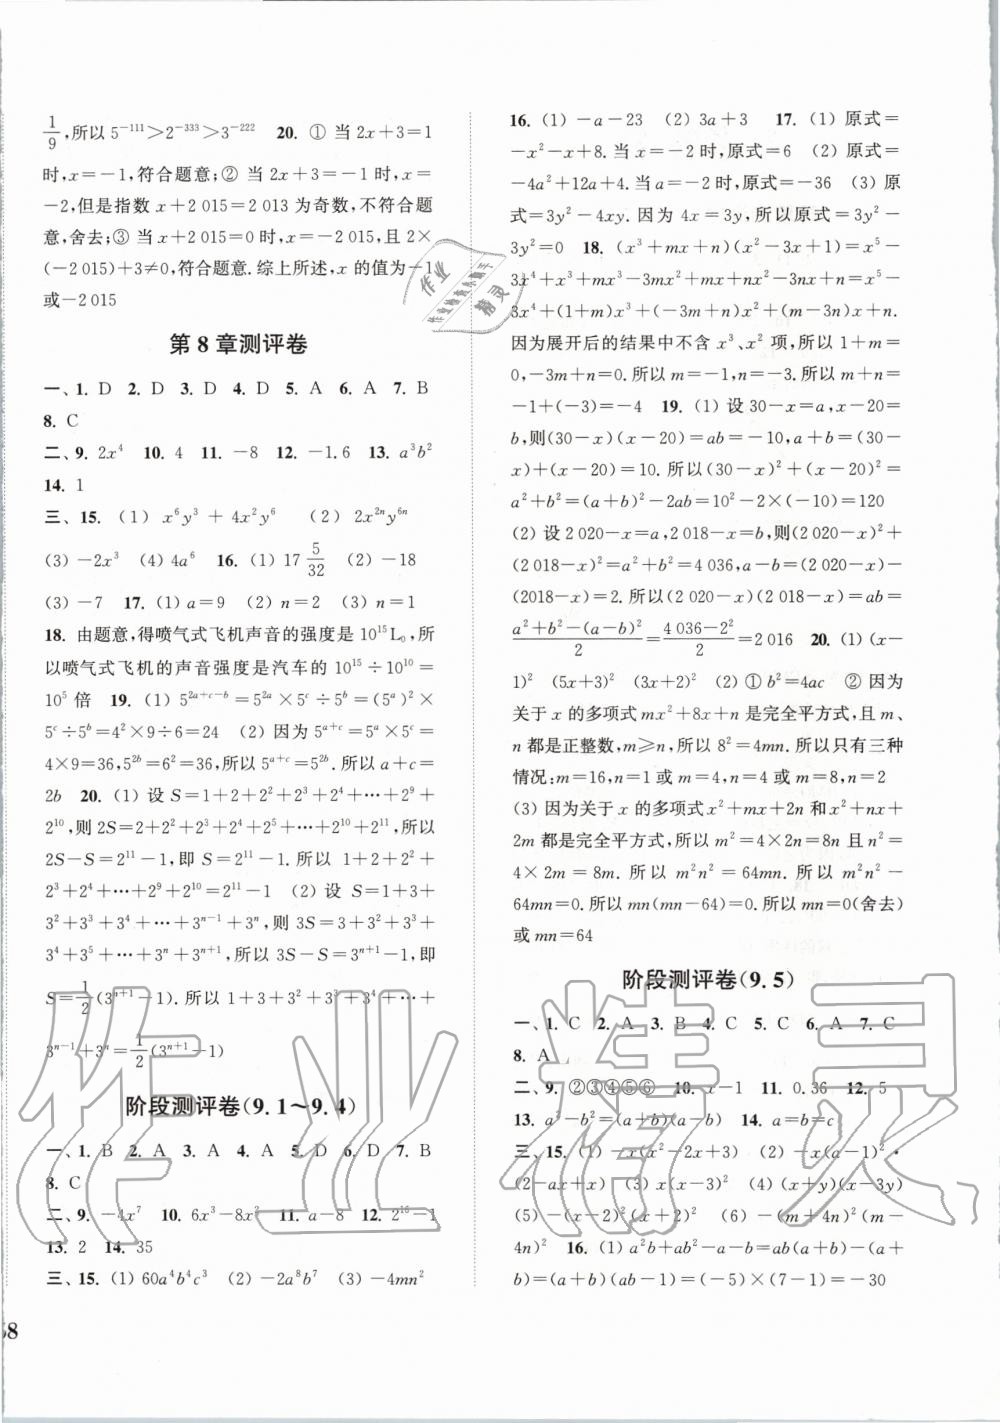 1/9,所以 5⁻¹¹¹>2⁻³³³>3⁻²²² 20. ① 当 2x+3=1
时,x=-1,符合题意;② 当 2x+3=-1 时,x=
-2,但是指数 x+2 015=2 013 为奇数,不符合题
意,舍去;③ 当 x+2 015=0 时,x=-2 015,且 2×
(-2 015)+3≠0,符合题意.综上所述,x 的值为-1
或-2 015
第 8 章测评卷
一、1. D 2. D 3. D 4. D 5. A 6. A 7. B
8. C
二、9. 2x⁴ 10. 4 11. -8 12. -1.6 13. a³b²
14. 1
三、15. (1) x⁶y³+4x²y⁶ (2) 2x²ⁿy⁶ⁿ
(3) -2x³ (4) 4a⁶ 16. (1) 17 5/32 (2) -18
(3) -7 17. (1) a=9 (2) n=2 (3) n=1
18. 由题意,得喷气式飞机声音的强度是 10¹⁵L₀,所
以喷气式飞机的声音强度是汽车的 10¹⁵÷10¹⁰=
10⁵ 倍 19. (1) 5^(2a+c-b)=5^(2a)×5^c÷5^b=(5^a)²×
5^c÷5^b=4²×9÷6=24 (2) 因为 5^(a+c)=5^a×5^c=
4×9=36,5^(2b)=6²=36,所以 5^(a+c)=5^(2b).所以 a+c=
2b 20. (1) 设 S=1+2+2²+2³+2⁴+…+2⁹+
2¹⁰,则 2S=2+2²+2³+2⁴+2⁵+…+2¹⁰+2¹¹,所以
2S-S=2¹¹-1,即 S=2¹¹-1.所以 1+2+2²+
2³+2⁴+…+2⁹+2¹⁰=2¹¹-1 (2) 设 S=1+3+
3²+3³+3⁴+…+3ⁿ⁻¹+3ⁿ,则 3S=3+3²+3³+
3⁴+3⁵+…+3ⁿ+3ⁿ⁺¹,所以 3S-S=3ⁿ⁺¹-1,即
S=1/2(3ⁿ⁺¹-1).所以 1+3+3²+3³+3⁴+…+
3ⁿ⁻¹+3ⁿ=1/2(3ⁿ⁺¹-1)
阶段测评卷(9.1~9.4)
一、1. B 2. A 3. A 4. A 5. D 6. D 7. B
8. C
二、9. -4x⁷ 10. 6x³-8x² 11. a-8 12. 2¹⁶-1
13. 2 14. 35
三、15. (1) 60a⁴b⁴c³ (2) -2a⁸b⁷ (3) -4mn²
68
16. (1) -a-23 (2) 3a+3 17. (1) 原式=
-x²-x+8.当 x=-2 时,原式=6 (2) 原式=
-4a²+12a+4.当 a=-2 时,原式=-36 (3) 原
式=3y²-4xy.因为 4x=3y,所以原式=3y²-
3y²=0 18. (x³+mx+n)(x²-3x+1)=x⁵-
3x⁴+x³+mx³-3mx²+mx+nx²-3nx+n=x⁵-
3x⁴+(1+m)x³+(-3m+n)x²+(m-3n)x+n.
因为展开后的结果中不含 x³、x² 项,所以 1+m=
0,-3m+n=0.所以 m=-1,n=-3.所以 m+n=
-1+(-3)=-4 19. (1) 设 30-x=a,x-20=
b,则(30-x)(x-20)=ab=-10,a+b=(30-
x)+(x-20)=10.所以(30-x)²+(x-20)²=
a²+b²=(a+b)²-2ab=10²-2×(-10)=120
(2) 设 2 020-x=a,2 018-x=b,则(2 020-x)²+
(2 018-x)²=a²+b²=4 036,a-b=(2 020-x)-
(2018-x)=2.所以(2 020-x)(2 018-x)=ab=
(a²+b²-(a-b)²)/2=(4 036-2²)/2=2 016 20. (1) (x-
1)² (5x+3)² (3x+2)² (2) ① b²=4ac ② 因为
关于 x 的多项式 mx²+8x+n 是完全平方式,且 m、
n 都是正整数,m≥n,所以 8²=4mn.所以只有三种
情况:m=16,n=1 或 m=4,n=4 或 m=8,n=2
(3) 因为关于 x 的多项式 x²+mx+2n 和 x²+nx+
2m 都是完全平方式,所以 m²=4×2n=8n 且 n²=
4×2m=8m.所以 m²n²=64mn.所以 m²n²-
64mn=0.所以 mn(mn-64)=0.所以 mn=0(舍去)
或 mn=64
阶段测评卷(9.5)
一、1. C 2. A 3. B 4. C 5. C 6. A 7. C
8. A
二、9. ②③④⑤⑥ 10. x-1 11. 0.36 12. 5
13. a²-b²=(a+b)(a-b) 14. a=b=c
三、15. (1) -x(x²-2x+3) (2) -x(a-1)²·
(2-ax) (3) x(x-3)² (4) (x+y)(x-3y)
(5) -(x-2)²(x+2)² (6) -(m+4n)²(m-
4n)² 16. (1) a²b+ab²-a-b=ab(a+b)-(a+
b)=(a+b)(ab-1)=(-5)×(7-1)=-30
作业
精灵
作业精灵